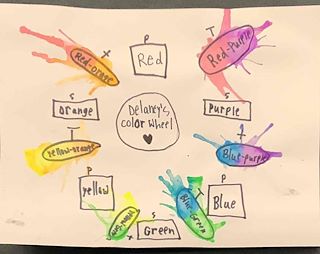 P
Red
T
Red-orange
T
Red-purple
S
orange
Delaney's
color wheel
S
Purple
T
yellow-orange
T
Blue-purple
P
yellow
T
Blue-Green
P
Blue
S
Green
T